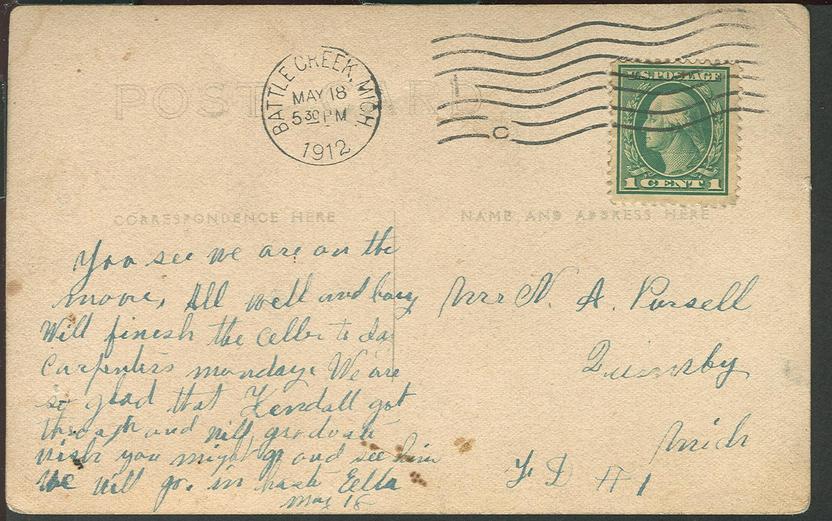 POST CARD
BATTLE CREEK, MICH.
MAY 18
5 30 PM
1912
C
U.S. POSTAGE
1 CENT 1
CORRESPONDENCE HERE
NAME AND ADDRESS HERE
You see we are on the
move, All well and busy
Will finish the celler to day
Carpenters monday. We are
so glad that Kendall got
through and will graduate
wish you might go and see him
We will go. in haste Etta
May 18
Mrs N. A. Pursell
Quimby
Mich
F D # 1